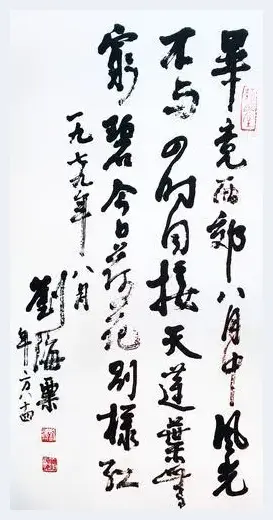 畢竟福郊八月中風光
不與四时同接天蓮葉無
窮碧今日荷花別樣紅
一九七九年八月
劉海粟
年方八十四